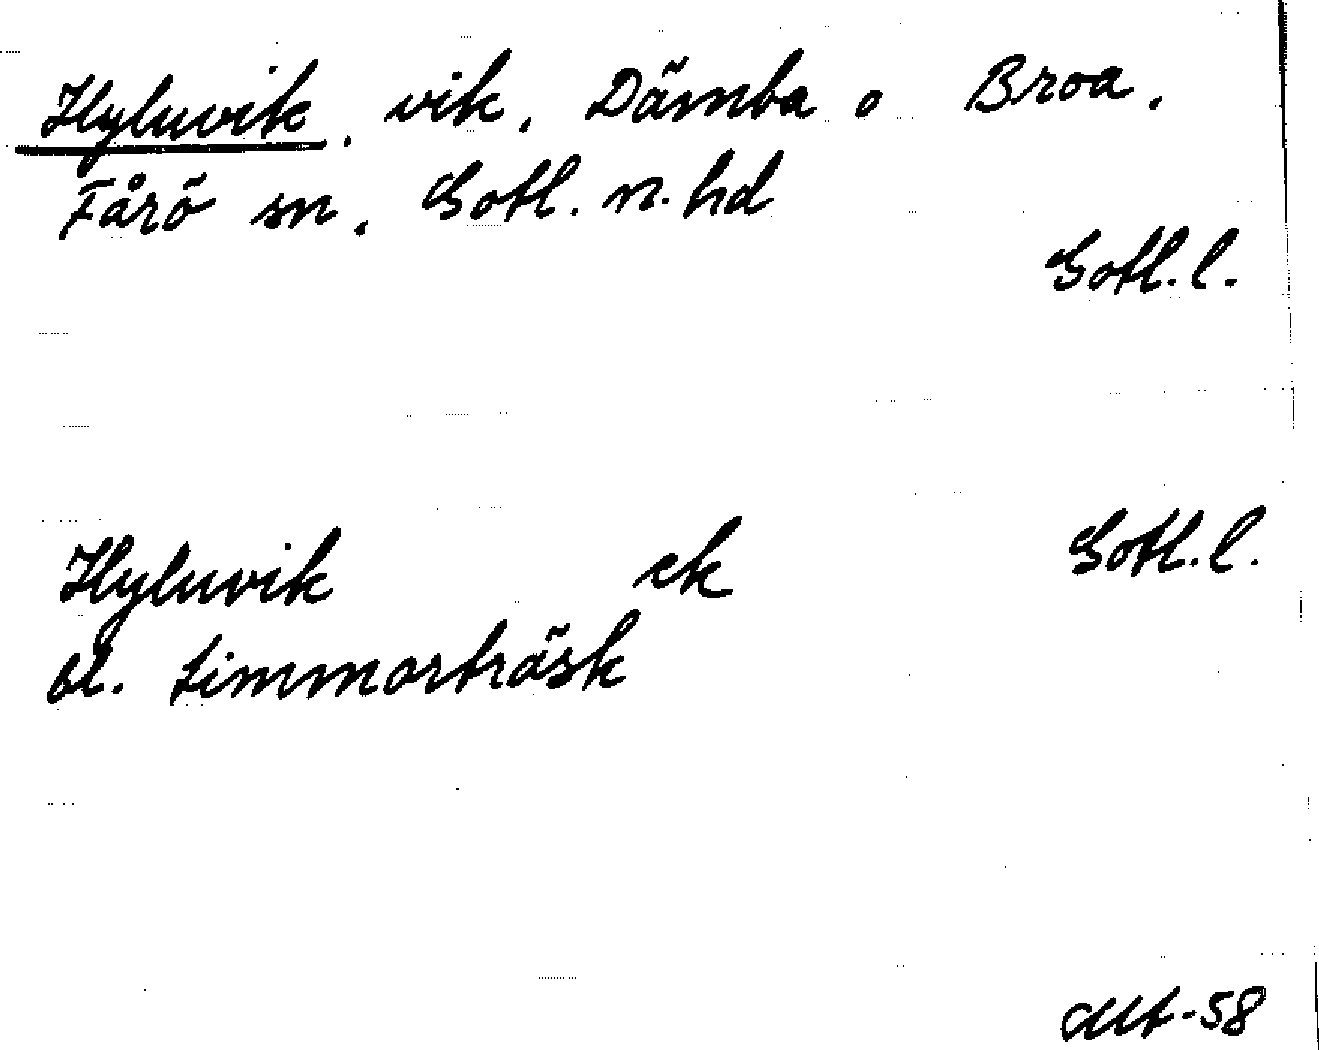 Hyluvik, vik, Dämba o Broa,
Fårö sn, Gotl. n. hd
Gotl. l.
Hyluvik ek Gotl. l.
bl. Limmorträsk